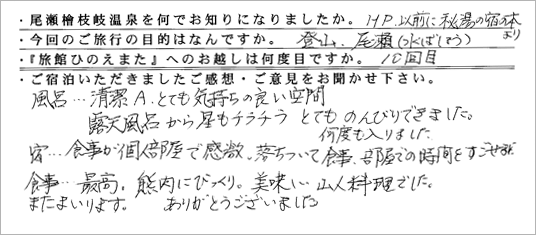 ・尾瀬檜枝岐温泉を何でお知りになりましたか。HP.以前に秘湯の宿の本より
・今回のご旅行の目的はなんですか。登山.尾瀬(水ばしょう)
・『旅館ひのえまた』へのお越しは何度目ですか。10回目
・ご宿泊いただきましたご感想・ご意見をお聞かせ下さい。
風呂…清潔A.とても気持ちの良い空間
露天風呂から星もチラチラ とてものんびりできました。
何度も入りました。
宿…食事が個部屋で感激.落ちついて食事.部屋での時間をすごせました
食事…最高。熊肉にびっくり。美味しい山人料理でした。
またまいります。 ありがとうございました